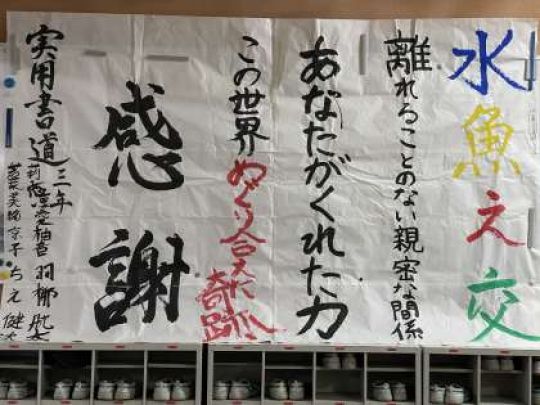 水魚え交
離れることのない親密な間係
あなたがくれた力
この世界めぐり合えた奇跡
感謝
実用書道三年